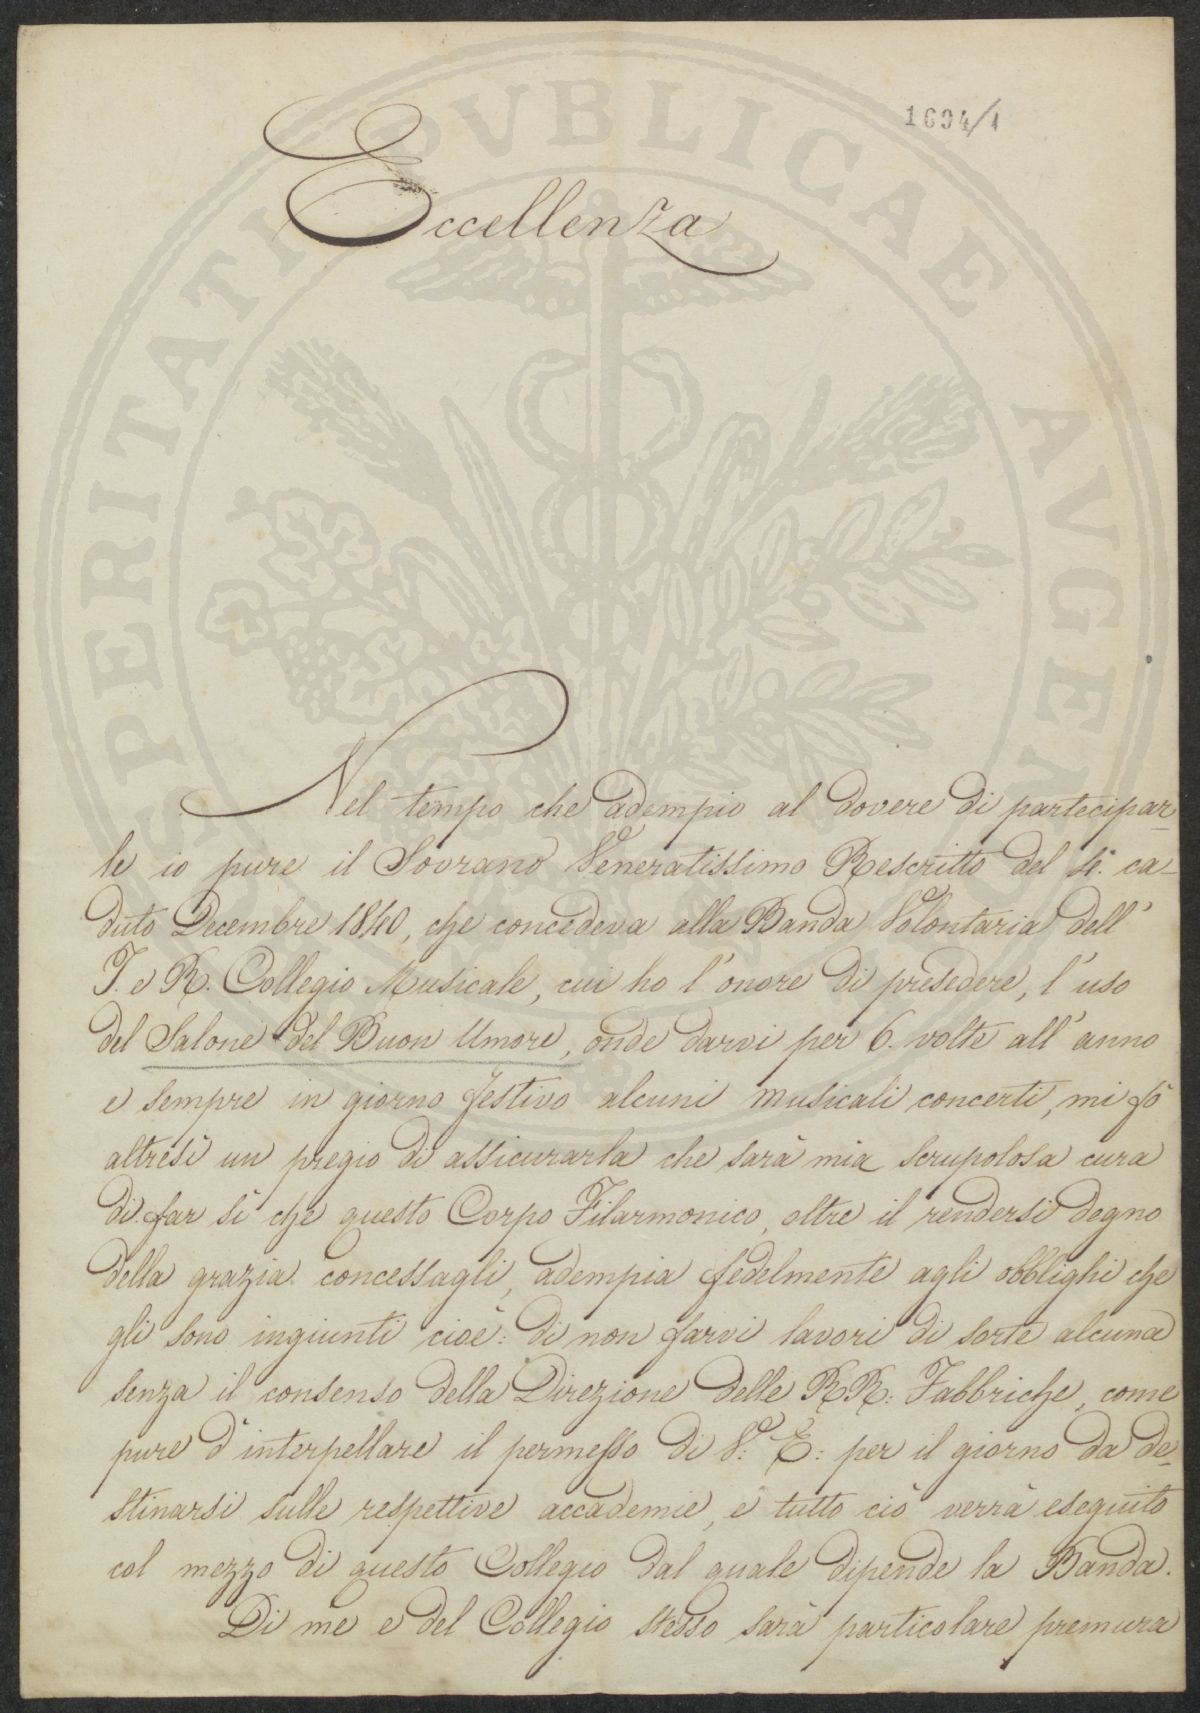 1694/1
Eccellenza
Nel tempo che adempio al dovere di partecipar=
le io pure il Sovrano Veneratissimo Rescritto del dì ca=
duto Decembre 1840, che concedeva alla Banda Volontaria dell'
I. e R. Collegio Musicale, cui ho l'onore di presedere, l'uso
del Salone del Buon Umore, onde darvi per 6. volte all'anno
e sempre in giorno festivo alcuni musicali concerti, mi fò
altresì un pregio di assicurarla che sarà mia scrupolosa cura
di far sì che questo Corpo Filarmonico, oltre il rendersi degno
della grazia concessagli, adempia fedelmente agli obblighi che
gli sono ingiunti cioè: di non farvi lavori di sorte alcuna
senza il consenso della Direzione delle RR: Fabbriche, come
pure d'interpellare il permesso di V: E: per il giorno da de=
stinarsi sulle respettive accademie, e tutto ciò verrà eseguito
col mezzo di questo Collegio dal quale dipende la Banda.
Di me e del Collegio stesso sarà particolare premura
PUBLICAE
AUGE
PERITATI